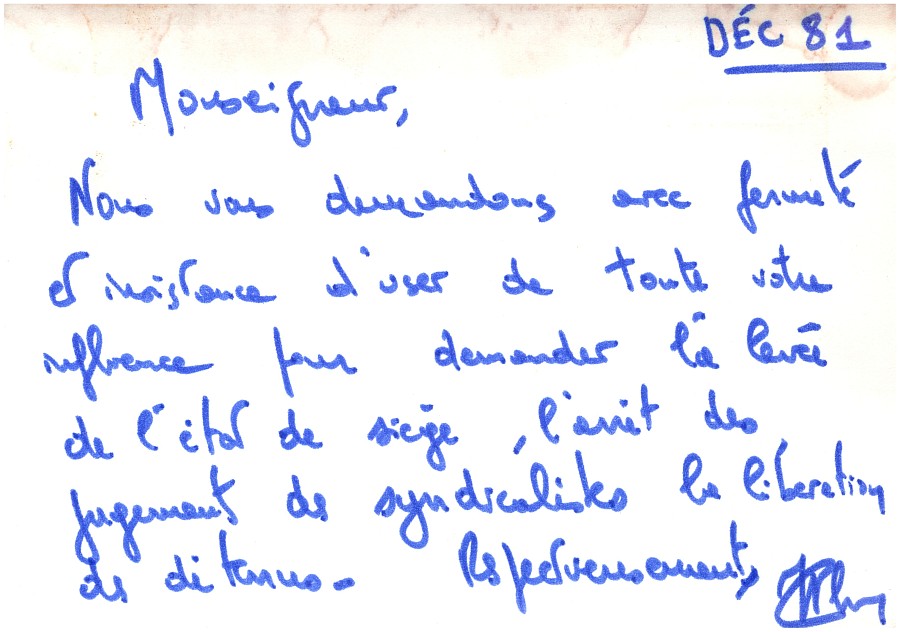 DÉC 81
Monseigneur,
Nous vous demandons avec fermeté
et insistance d'user de toute votre
influence pour demander la levée
de l'état de siège, l'arrêt des
jugements de syndicalistes la libération
de détenus. Respectueusement,